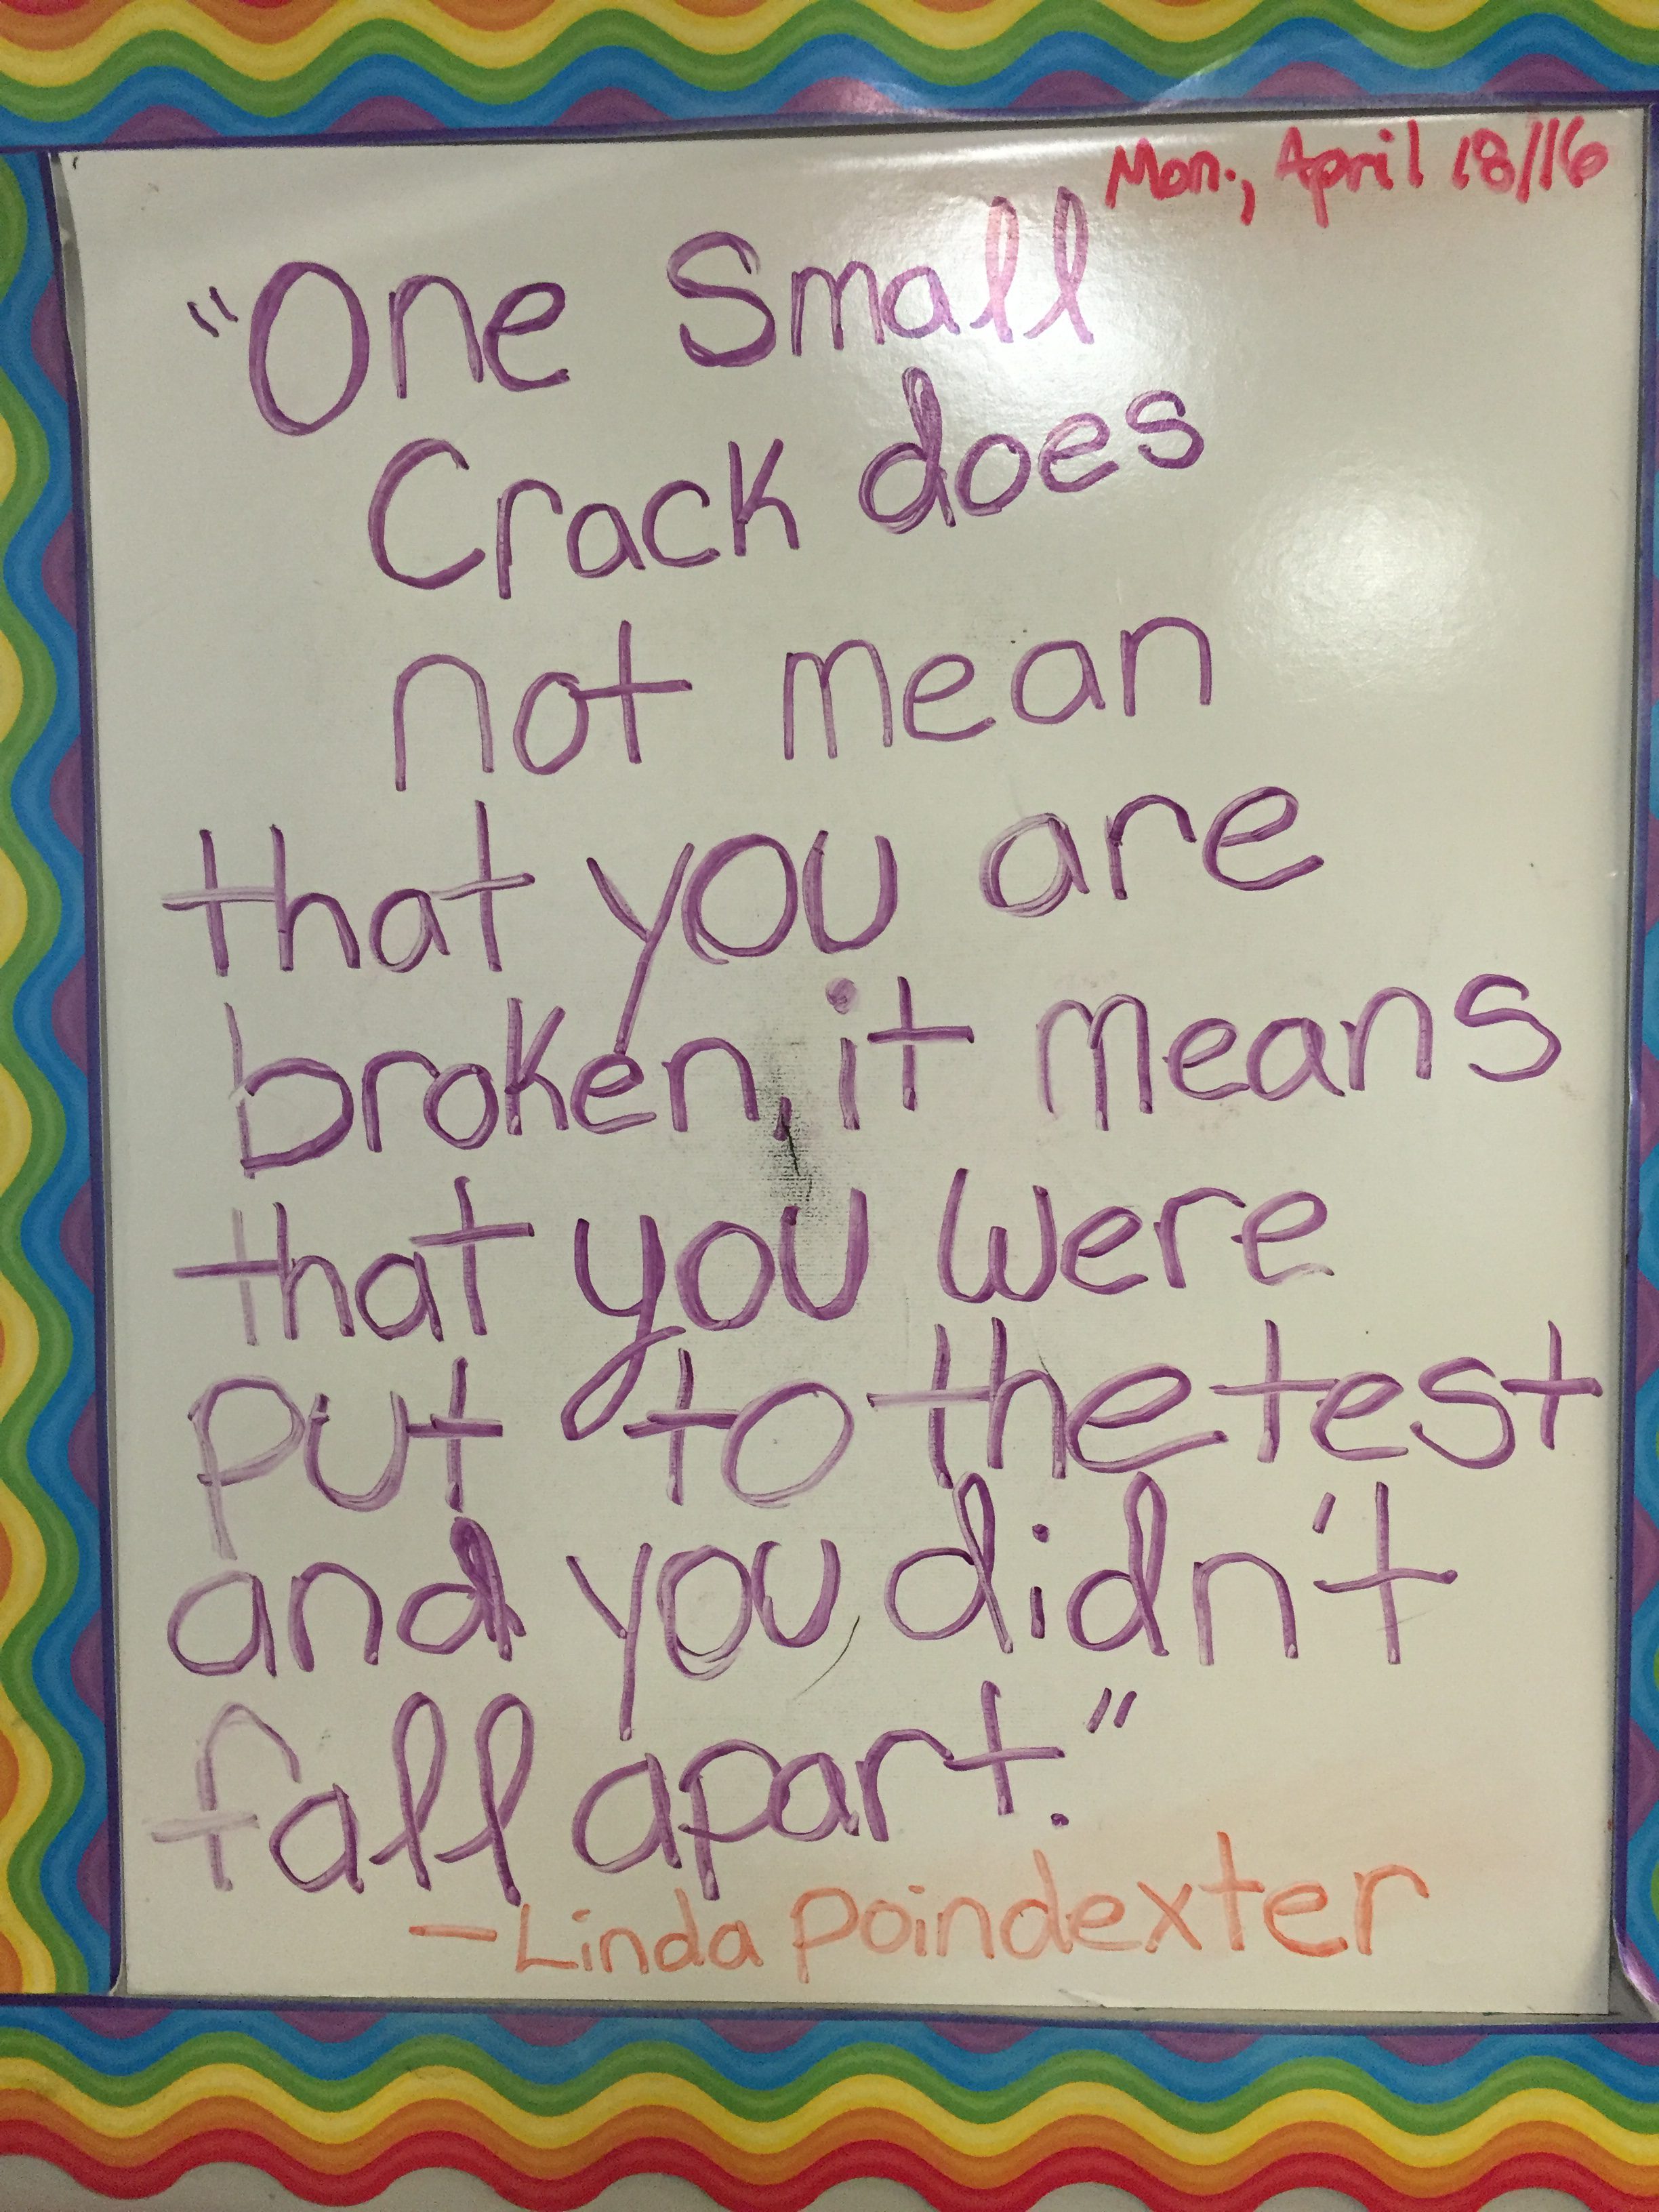 Mon., April 18/16
"One Small
Crack does
not mean
that you are
broken, it means
that you were
put to the test
and you didn't
fall apart."
- Linda Poindexter